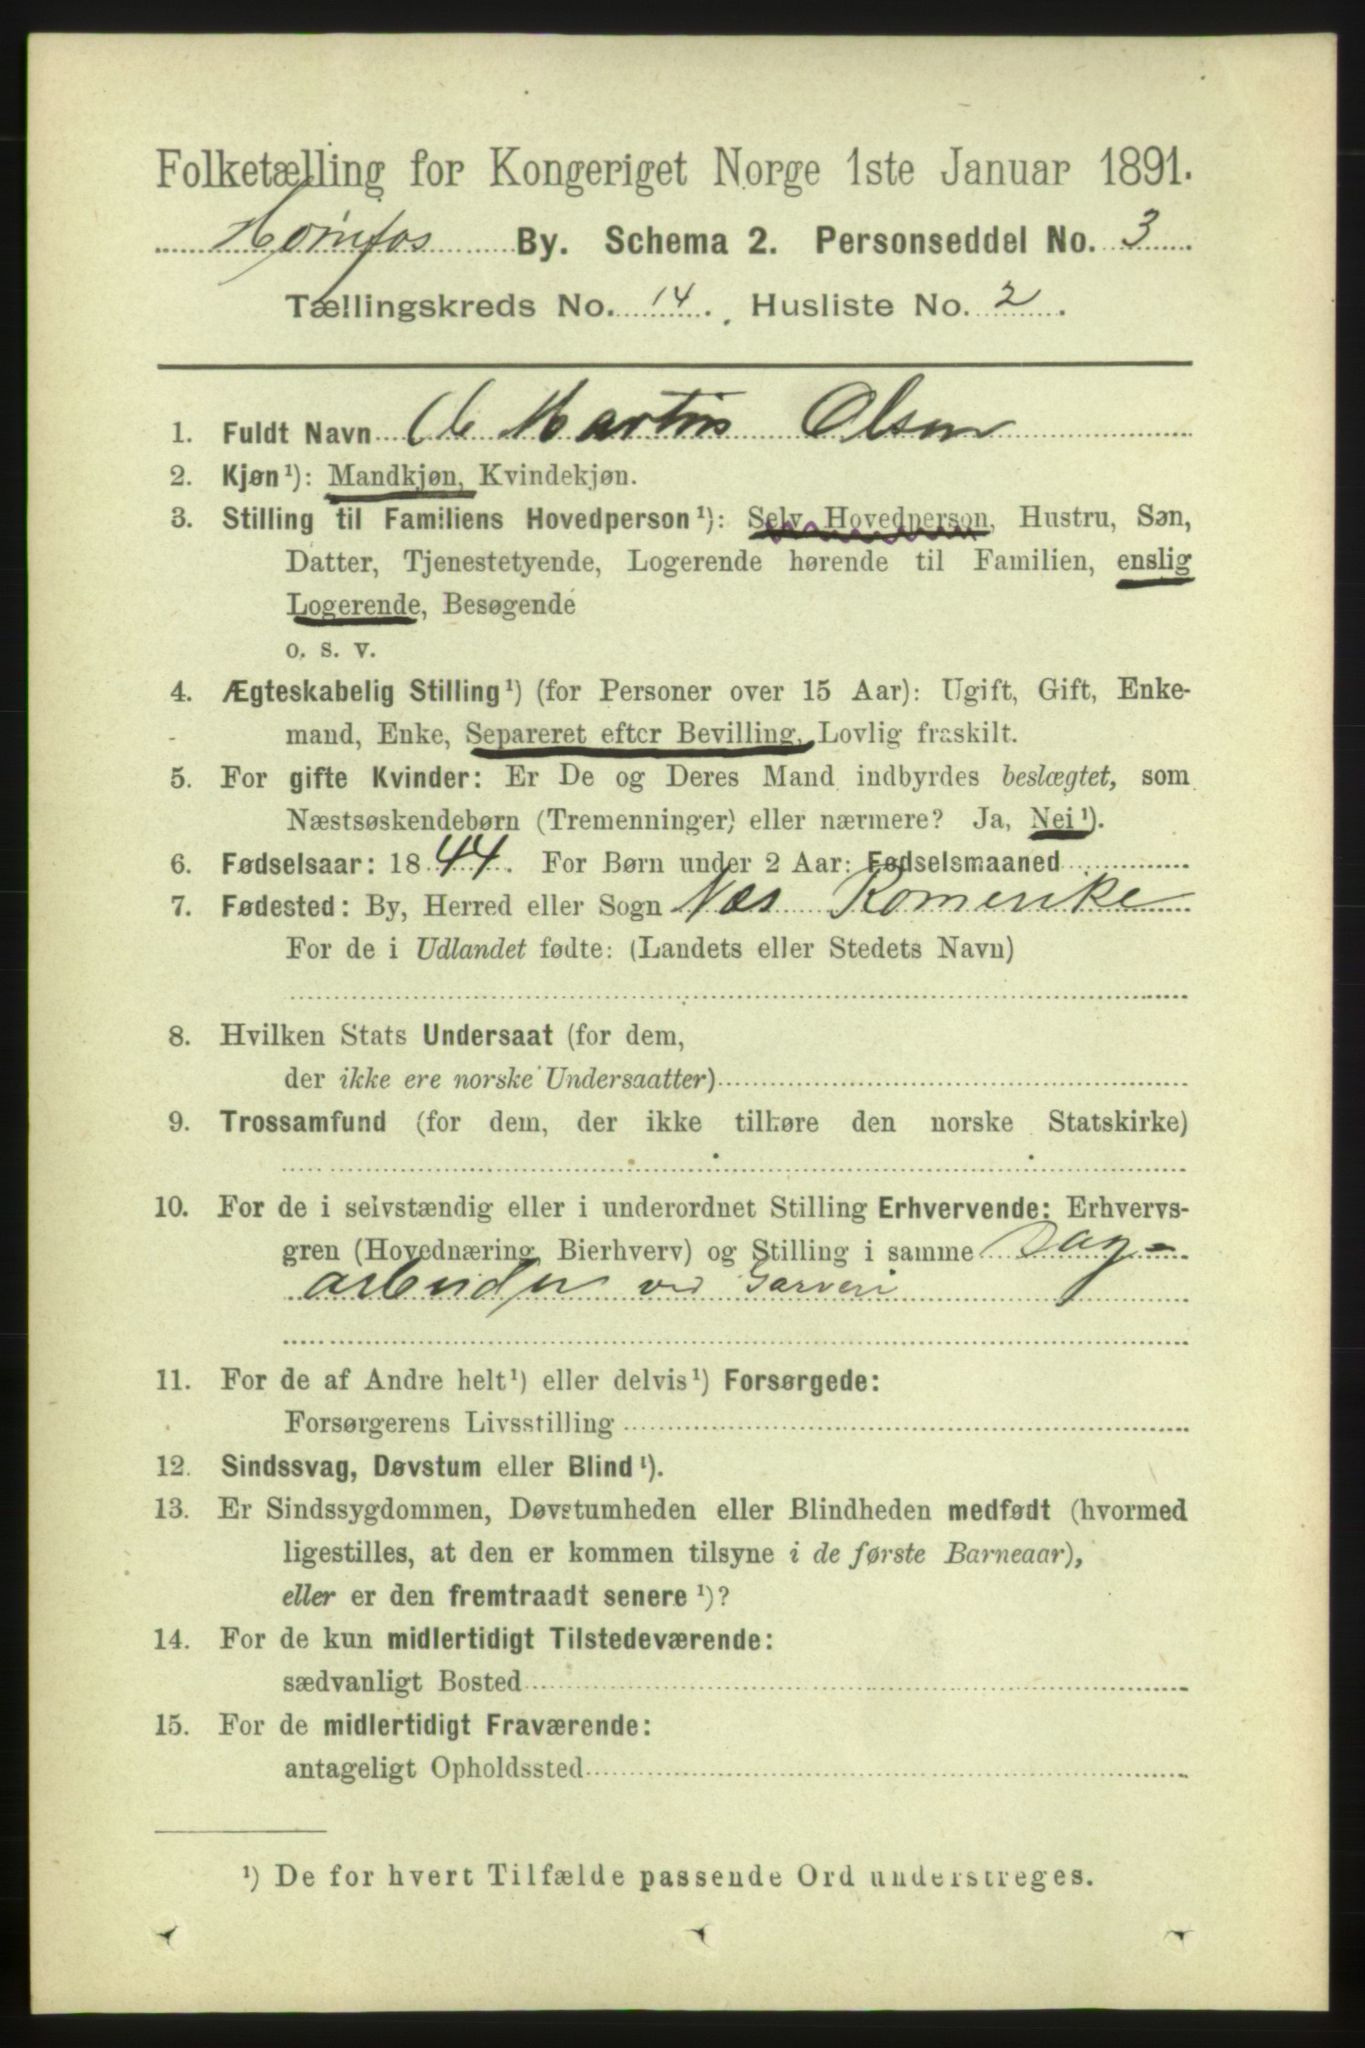 Folketælling for Kongeriget Norge 1ste Januar 1891.
Hønefos By. Schema 2. Personseddel No. 3
Tællingskreds No. 14. Husliste No. 2
1. Fuldt Navn Ole Martins Olsen
2. Kjøn ¹): Mandkjøn, Kvindekjøn.
3. Stilling til Familiens Hovedperson ¹): Selv Hovedperson, Hustru, Søn,
Datter, Tjenestetyende, Logerende hørende til Familien, enslig
Logerende, Besøgende
o. s. v.
4. Ægteskabelig Stilling ¹) (for Personer over 15 Aar): Ugift, Gift, Enke-
mand, Enke, Separeret efter Bevilling, Lovlig fraskilt.
5. For gifte Kvinder: Er De og Deres Mand indbyrdes beslægtet, som
Næstsøskendebørn (Tremenninger) eller nærmere? Ja, Nei ¹).
6. Fødselsaar: 1844. For Børn under 2 Aar: Fødselsmaaned
7. Fødested: By, Herred eller Sogn Næs Romerike
For de i Udlandet fødte: (Landets eller Stedets Navn)
8. Hvilken Stats Undersaat (for dem,
der ikke ere norske Undersaatter)
9. Trossamfund (for dem, der ikke tilhøre den norske Statskirke)
10. For de i selvstændig eller i underordnet Stilling Erhvervende: Erhvervs-
gren (Hovednæring, Bierhverv) og Stilling i samme Dag-
arbeider ved Garveri
11. For de af Andre helt ¹) eller delvis ¹) Forsørgede:
Forsørgerens Livsstilling
12. Sindssvag, Døvstum eller Blind ¹).
13. Er Sindssygdommen, Døvstumheden eller Blindheden medfødt (hvormed
ligestilles, at den er kommen tilsyne i de første Barneaar),
eller er den fremtraadt senere ¹)?
14. For de kun midlertidigt Tilstedeværende:
sædvanligt Bosted
15. For de midlertidigt Fraværende:
antageligt Opholdssted
¹) De for hvert Tilfælde passende Ord understreges.